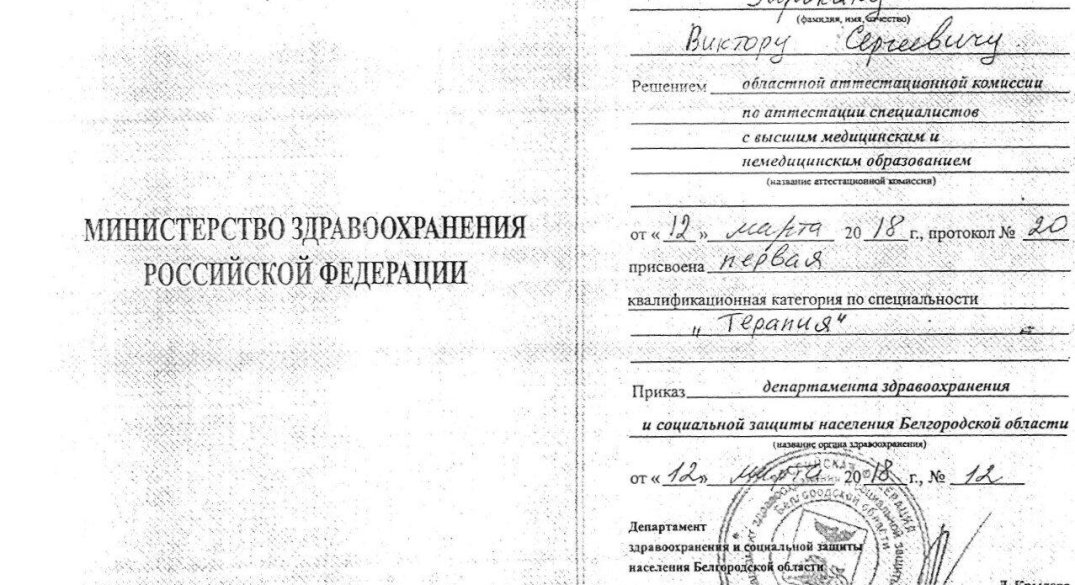 МИНИСТЕРСТВО ЗДРАВООХРАНЕНИЯ
РОССИЙСКОЙ ФЕДЕРАЦИИ
(фамилия, имя, отчество)
Виктору Сергеевичу
Решением областной аттестационной комиссии
по аттестации специалистов
с высшим медицинским и
немедицинским образованием
(название аттестационной комиссии)
от «12» марта 2018 г., протокол № 20
присвоена первая
квалификационная категория по специальности
„Терапия“
Приказ департамента здравоохранения
и социальной защиты населения Белгородской области
(название органа здравоохранения)
от «12» марта 2018 г., № 12
Департамент
здравоохранения и социальной защиты
населения Белгородской области